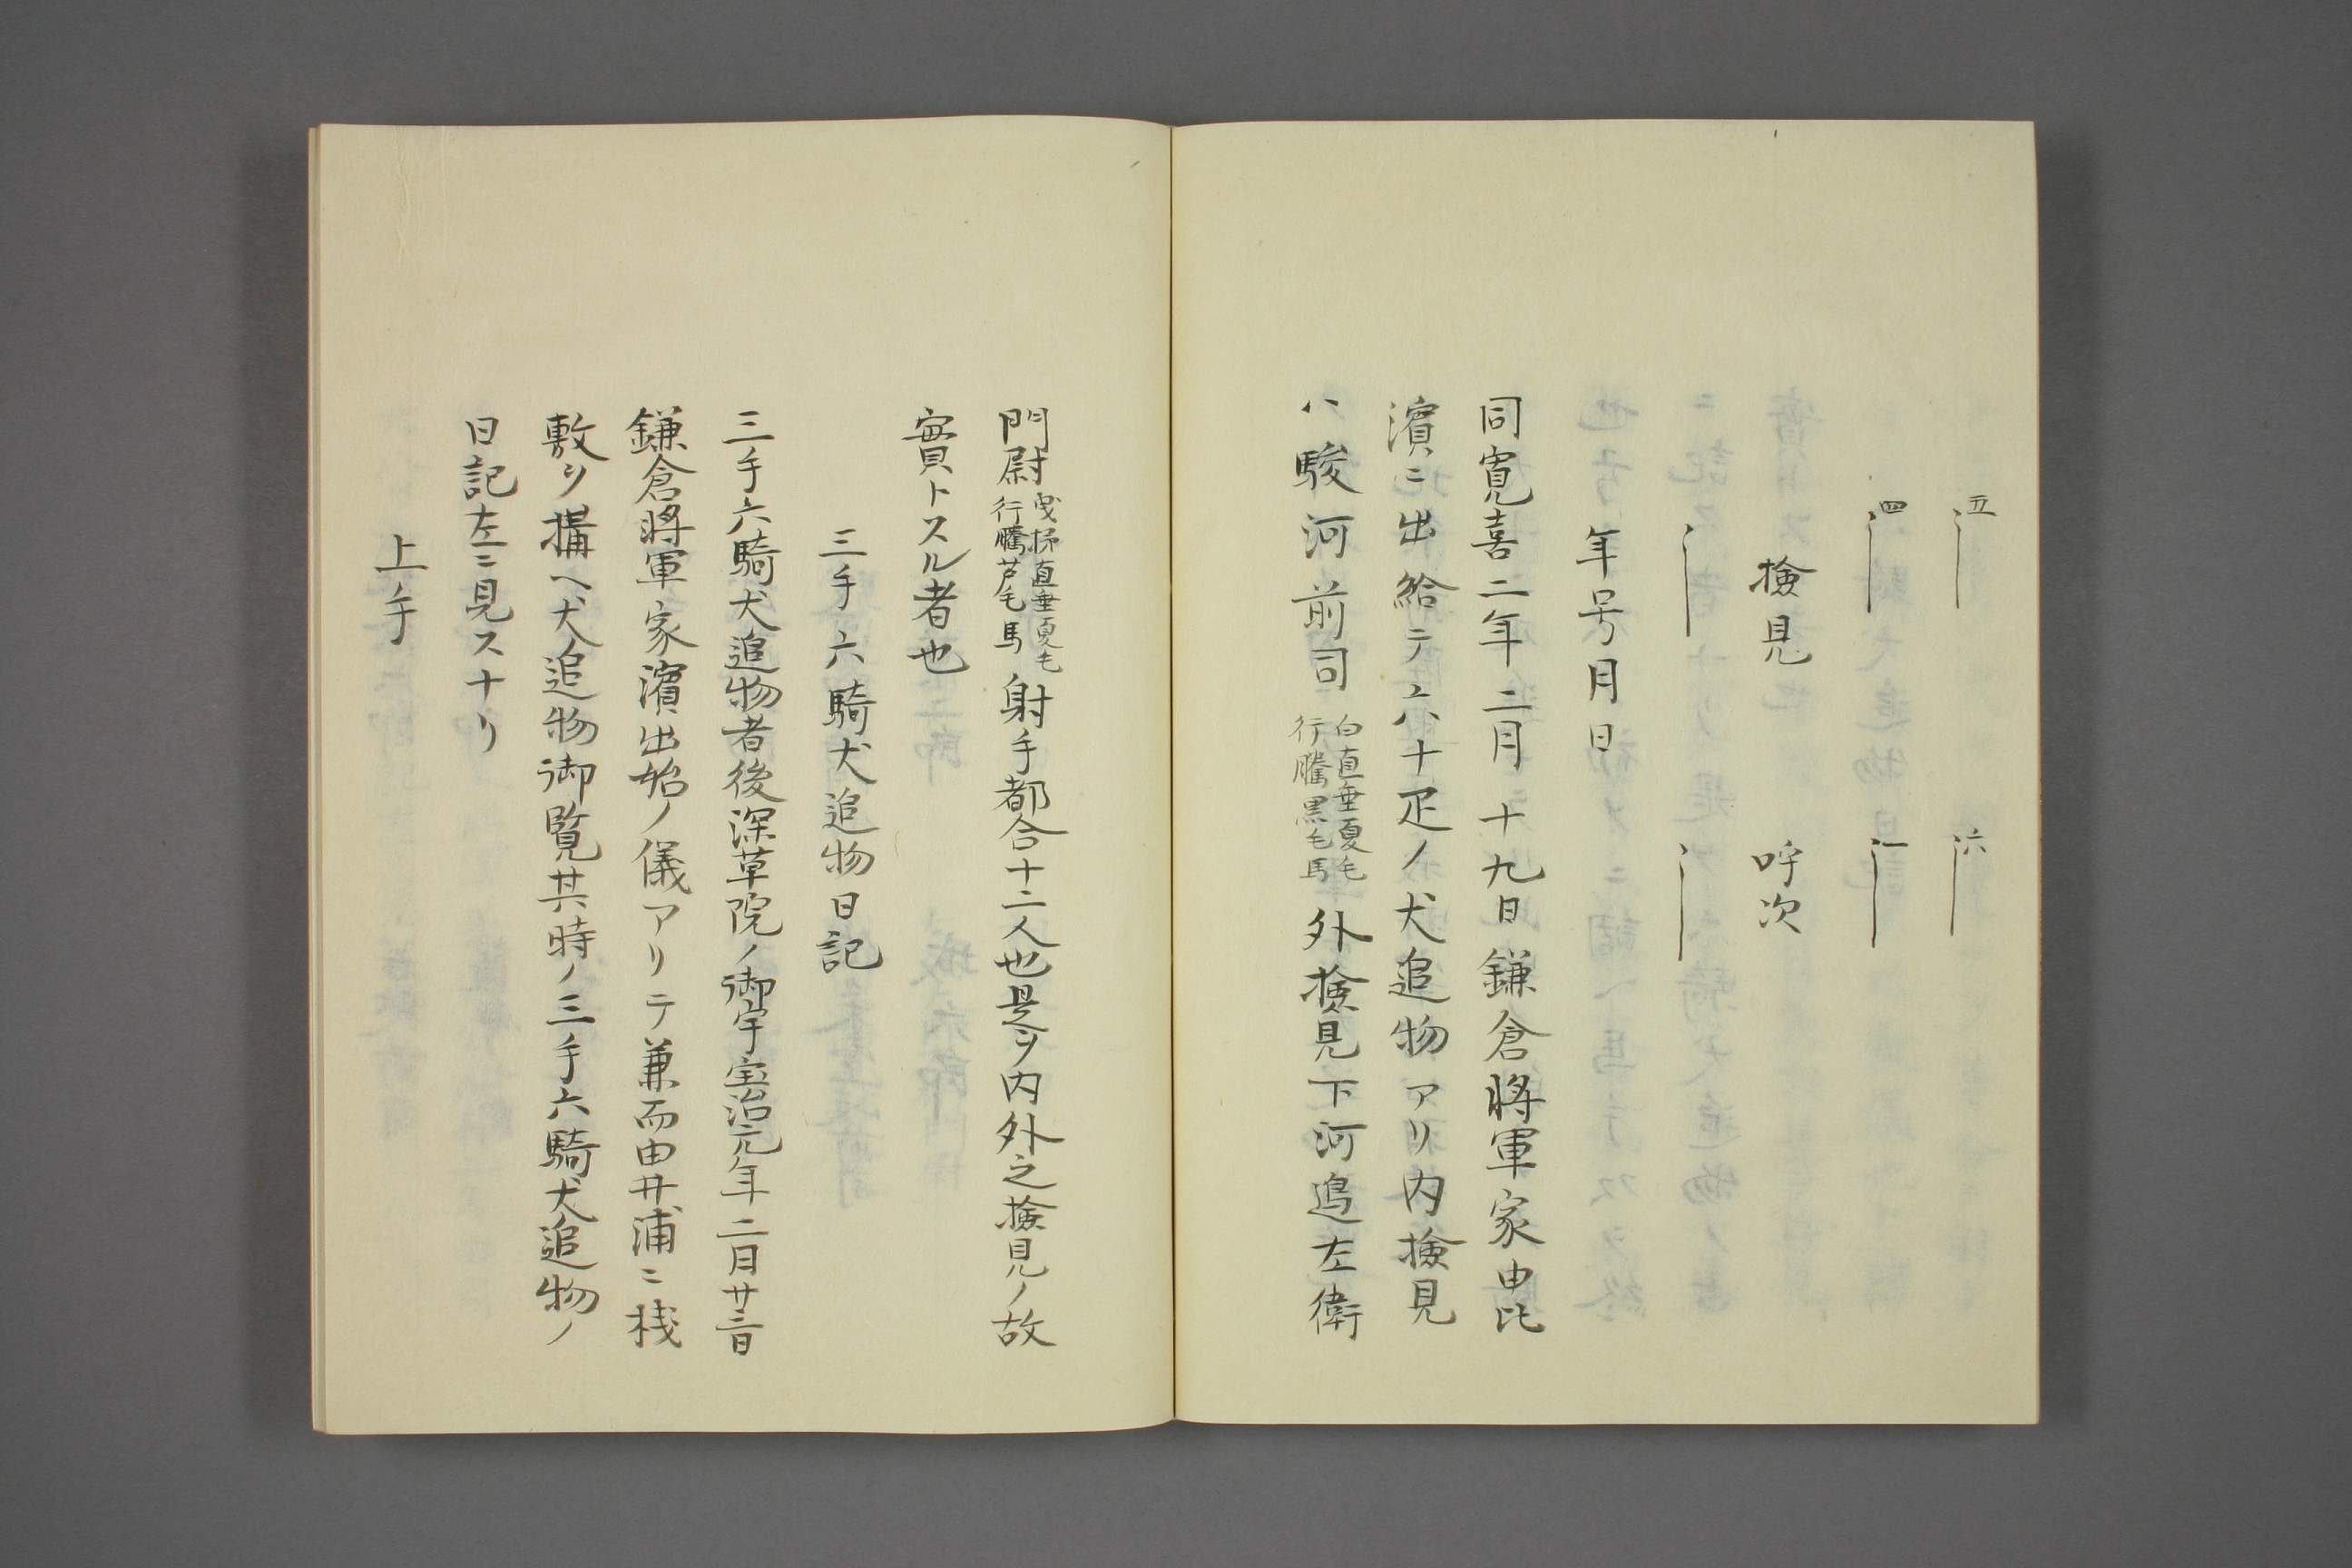 五　六
四　一
檢見　呼次
年号月日
同寛喜二年二月十九日鎌倉將軍家由比
濱ニ出給テ六十疋ノ犬追物アリ内檢見
ハ駿河前司 白直垂夏毛 行騰黒毛馬 外檢見下河邉左衛
門尉 直垂夏毛 行騰芦毛馬 射手都合十二人也是ヲ内外之檢見ノ故
實トスル者也
三手六騎犬追物日記
三手六騎犬追物者後深草院ノ御宇宝治元年二月廿三日
鎌倉將軍家濱出始ノ儀アリテ兼而由井浦ニ桟
敷ヲ搆ヘ犬追物御覧其時ノ三手六騎犬追物ノ
日記左ニ見スナリ
上手